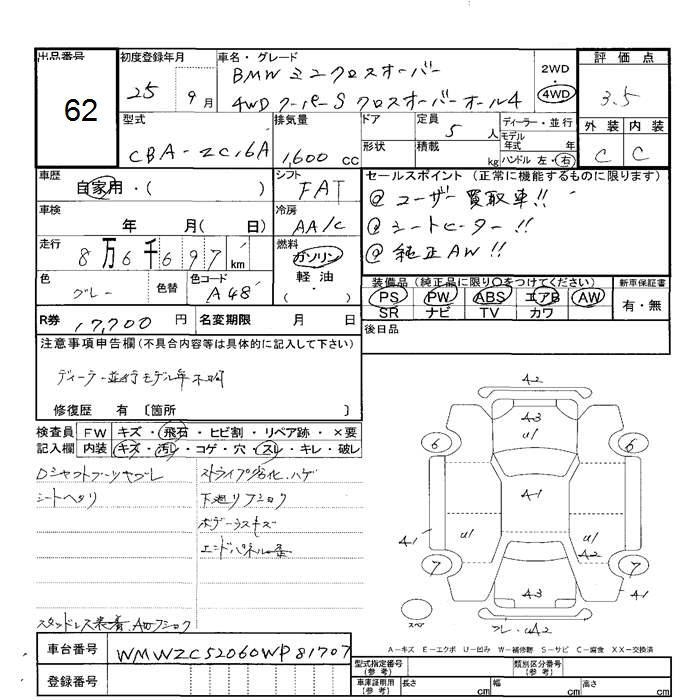 出品番号
62
初度登録年月
25 9月
車名・グレード
BMW ミニクロスオーバー
4WD クーパーS クロスオーバーオール4
2WD・4WD
評価点
3.5
型式
CBA-ZC16A
排気量
1,600 cc
ドア
形状
定員
5 人
積載
kg
ディーラー・並行
モデル年式 年
ハンドル 左・右
外装 内装
C C
車歴
自家用・( )
シフト
FAT
セールスポイント (正常に機能するものに限ります)
@ ユーザー買取車!!
@ シートヒーター!!
@ 純正AW!!
車検
年 月( 日)
冷房
AA/C
走行
8万6千697km
燃料
ガソリン
軽油
色
グレー
色替
色コード
A48
装備品 (純正品に限り○をつけてください)
新車保証書
PS PW ABS エアB AW
有・無
SR ナビ TV カワ
R券 17,700 円
名変期限 月 日
後日品
注意事項申告欄 (不具合内容等は具体的に記入して下さい)
ディーラー並行モデル年不明
修復歴 有 〔箇所 〕
検査員
記入欄
FW キズ・飛石・ヒビ割・リペア跡・×要
内装 キズ・汚レ・コゲ・穴・スレ・キレ・破レ
Dシャフトブーツヤブレ
ストライプ劣化、ハゲ
シートヘタリ
下廻りフショク
ボデーラスキズ
スタッドレス装着、AWフショク
A2
A3
U1
6
6
A1
A1
U1
U1
A2
7
7
A3
A1
スペ
A-キズ E-エクボ U-凹み W-補修跡 S-サビ C-腐食 XX-交換済
車台番号
WMWZC52060WP81707
登録番号
型式指定番号
(参考)
類別区分番号
(参考)
車庫証明用
(参考)
長さ cm
幅 cm
高さ cm